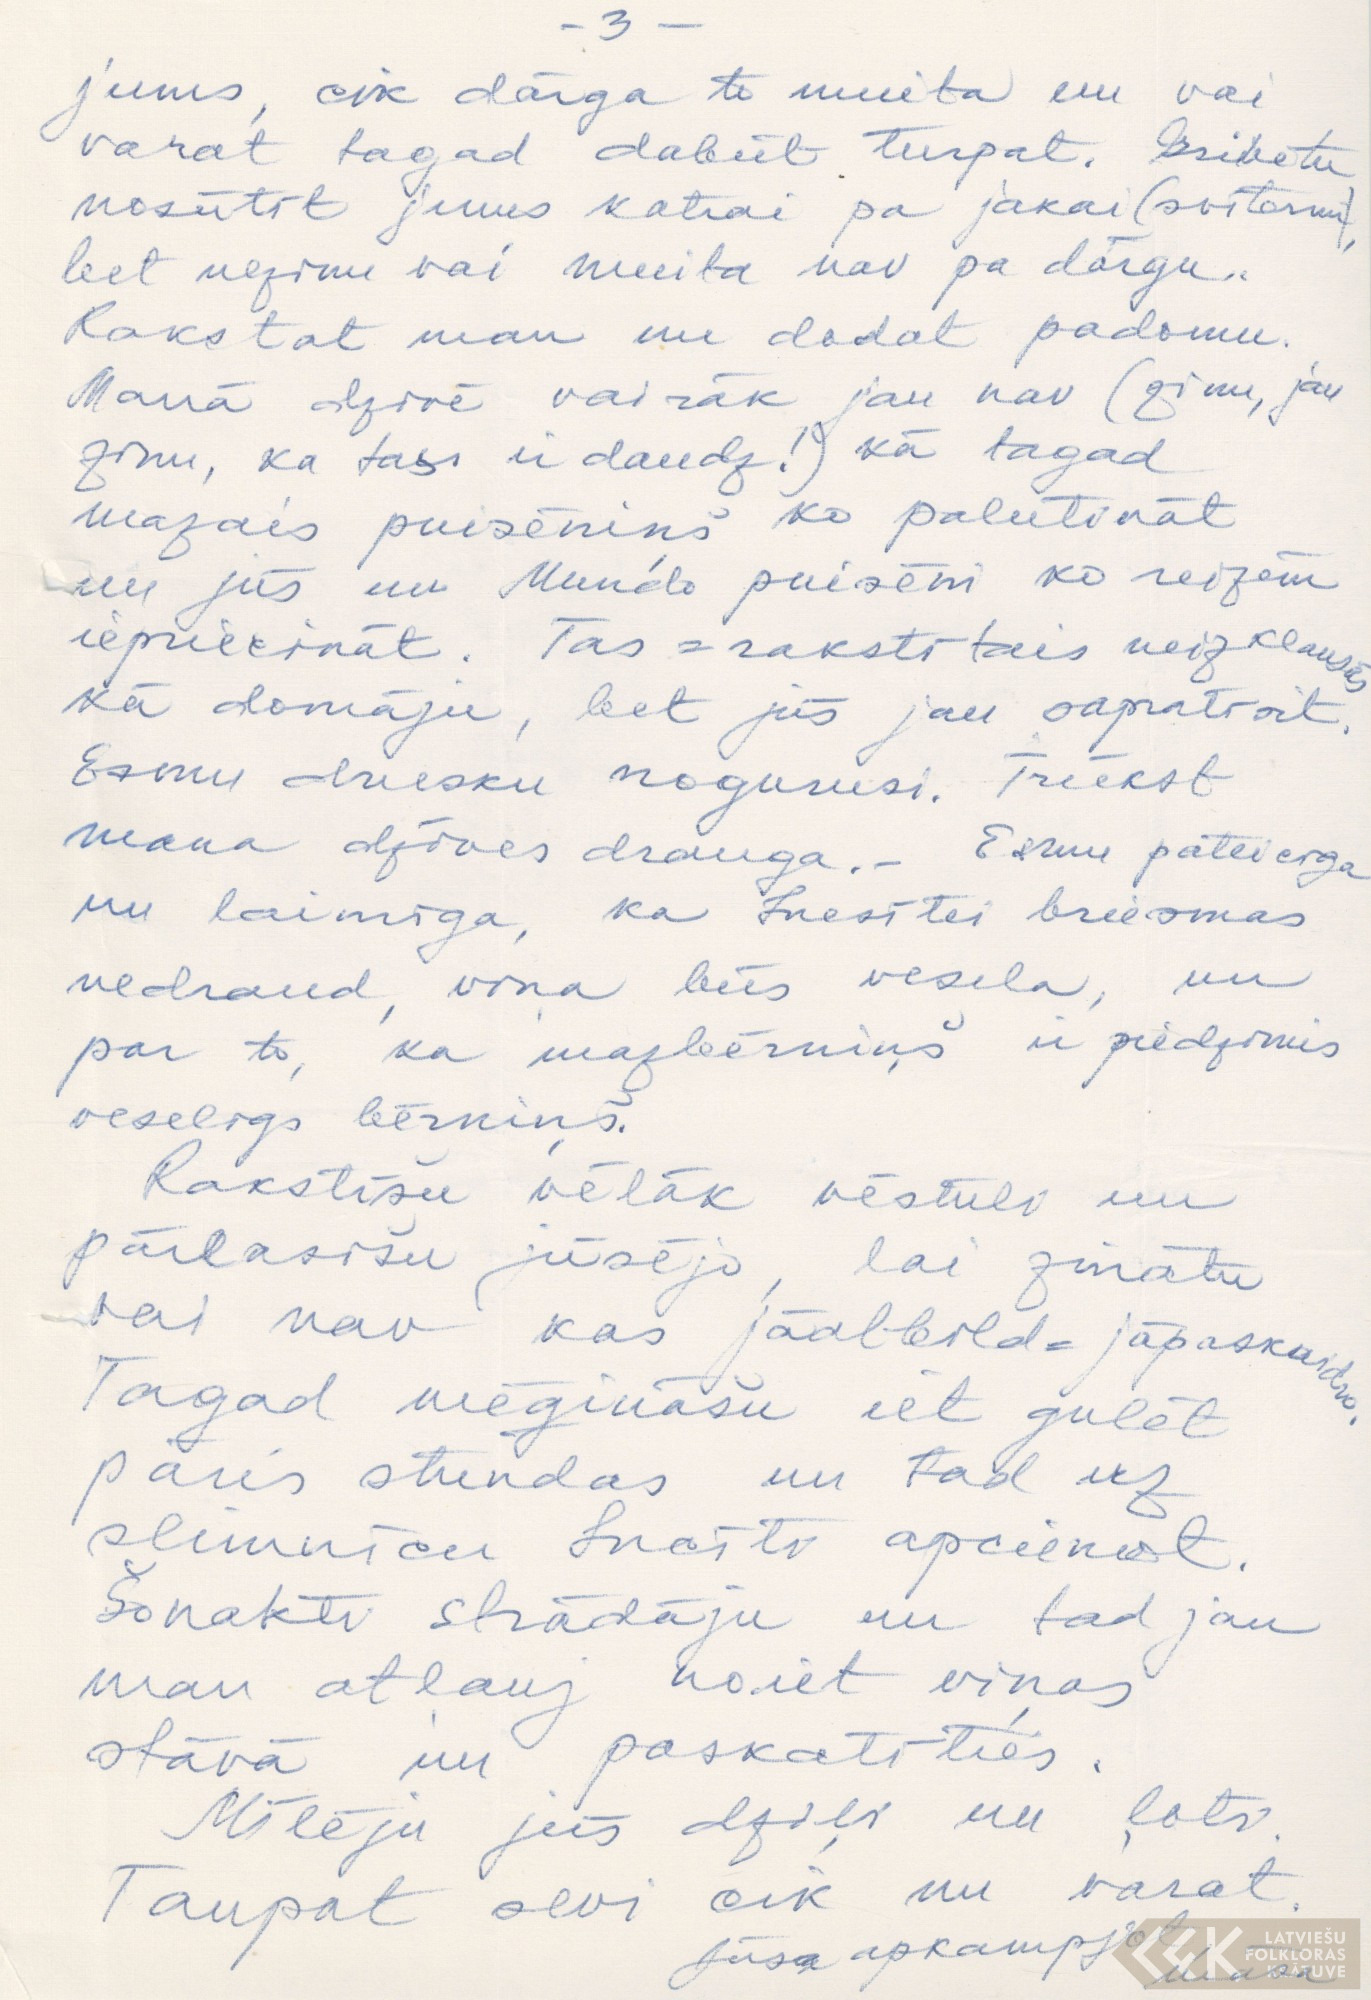 - 3 -
jums, cik dārga to muita un vai
varat tagad dabūt turpat. Gribētu
nosūtīt jums katrai pa jakai (svīterim),
bet nezinu vai muita nav pa dārgu..
Rakstat man un dodat padomu.
Manā dzīvē vairāk jau nav (zinu, jau
zinu, ka tas ir daudz!) kā tagad
mazais puisēniņš ko palutināt
un jūs un Mundo puisēni ko reizēm
iepriecināt. Tas = rakstītais neizklausās
kā domāju, bet jūs jau sapratīsit.
Esmu drusku nogurusi. Trūkst
mana dzīves drauga. - Esmu pateicīga
un laimīga, ka Inesītei briesmas
nedraud, viņa būs vesela, un
par to, ka mazbērniņš ir piedzimis
veselīgs bērniņš.
Rakstīšu vēlāk vēstuli un
pārlasīšu jūsējo, lai zinātu
vai nav kas jāatbild = jāpaskaidro.
Tagad mēģināšu iet gulēt
pāris stundas un tad uz
slimnīcu Inesīti apciemot.
Šonakti strādāju un tad jau
man atļauj noiet viņas
stāvā un paskatīties.
Mīlēju jūs dziļi un ļoti.
Taupat sevi cik nu varat.
jūsa apkampjot
māsa
LATVIEŠU
FOLKLORAS
KRĀTUVE